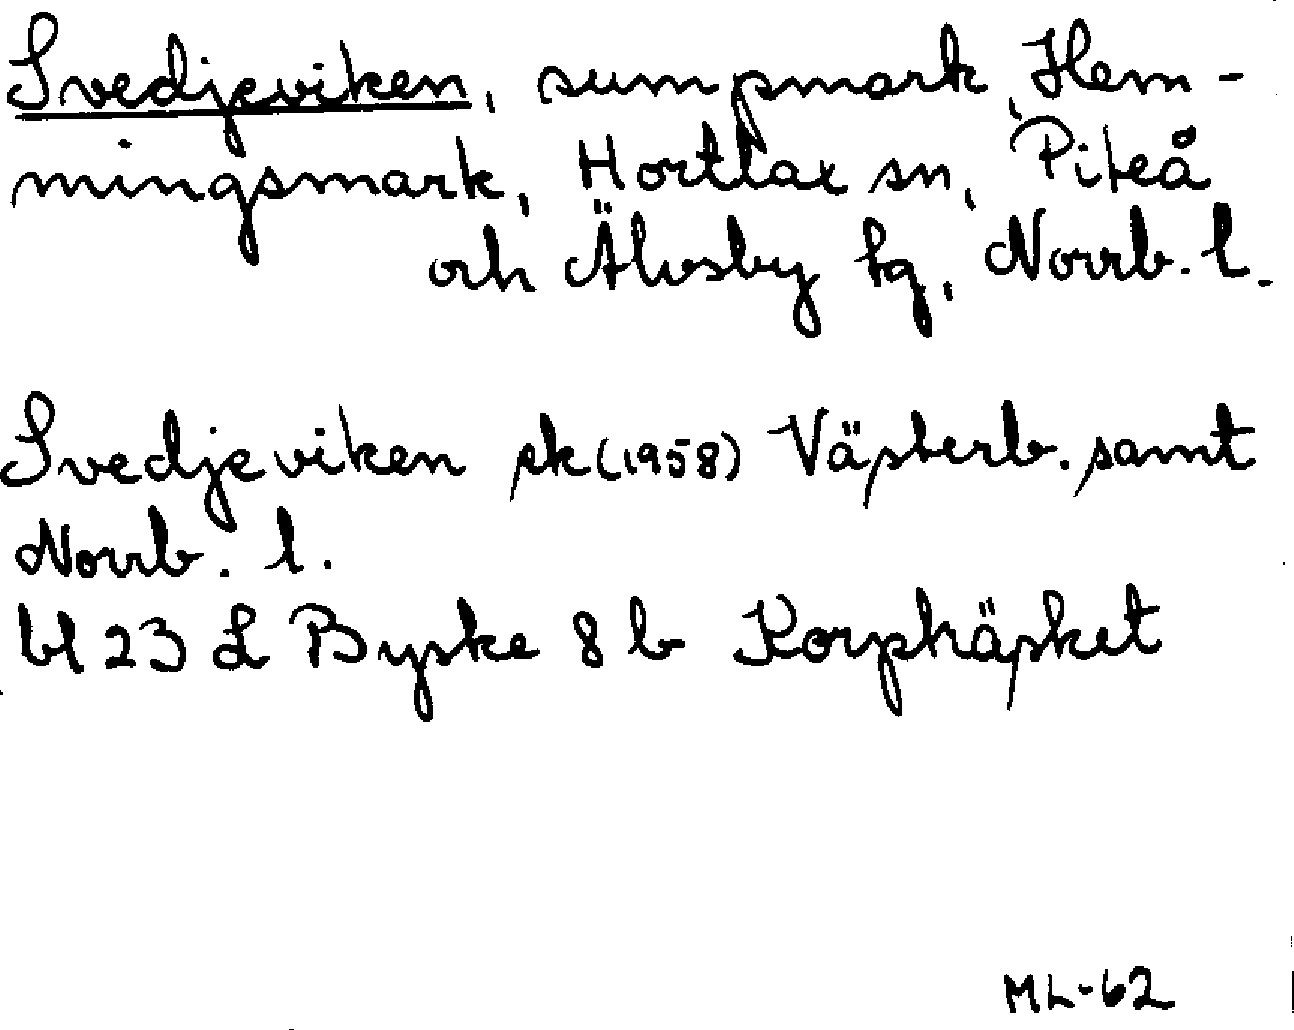 Svedjeviken, sumpmark, Hem-
mingsmark, Hortlax sn, Piteå
och Älvsby tg, Norrb. l.
Svedjeviken sk (1958) Västerb. samt
Norrb. l.
bl 23 L Byske 8 b Korpträsket
ML-62